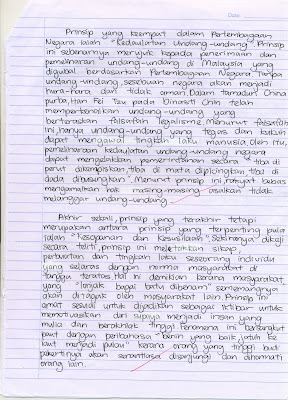 Date:
Prinsip yang keempat dalam Perlembagaan
Negara ialah "Kedaulatan Undang-undang". Prinsip
ini sebenarnya merujuk kepada penerimaan dan
pematuhan undang-undang di Malaysia yang
digubal berdasarkan Perlembagaan Negara. Tanpa
undang-undang, sesebuah negara akan menjadi
huru-hara dan tidak aman. Dalam tamadun China
purba, Han Fei Tzu pada Dinasti Chin telah
memperkenalkan undang-undang yang
berteraskan falsafah legalisme. Menurut falsafah
ini, hanya undang-undang yang tegas dan kukuh
dapat mengawal tingkah laku manusia. Oleh itu,
pemeliharaan kedaulatan undang-undang negara
dapat mengelakkan pemerintahan secara "tiba di
perut dikempiskan, tiba di mata dipicingkan, tiba di
dada dibusungkan". Menurut prinsip ini, rakyat bebas
mengamalkan hak masing-masing asalkan tidak
melanggar undang-undang.
Akhir sekali, prinsip yang terakhir tetapi
merupakan antara prinsip yang terpenting pula
ialah "Kesopanan dan Kesusilaan". Sekiranya dikaji
secara teliti, prinsip ini meletakkan sikap,
pertuturan dan tingkah laku seseorang individu
yang selaras dengan norma masyarakat di
tangga teratas. Hal ini demikian kerana masyarakat
yang "lonjak bagai batu dibenam" sememangnya
akan ditolak oleh masyarakat lain. Prinsip ini
amat sesuai untuk dijadikan sebagai iktibar untuk
memotivasikan diri supaya menjadi insan yang
mulia dan berakhlak tinggi. Fenomena ini bersangkut
paut dengan peribahasa "benih yang baik, jatuh ke
laut menjadi pulau" kerana orang yang tinggi budi
pekertinya akan senantiasa disanjungi dan dihormati
orang lain.